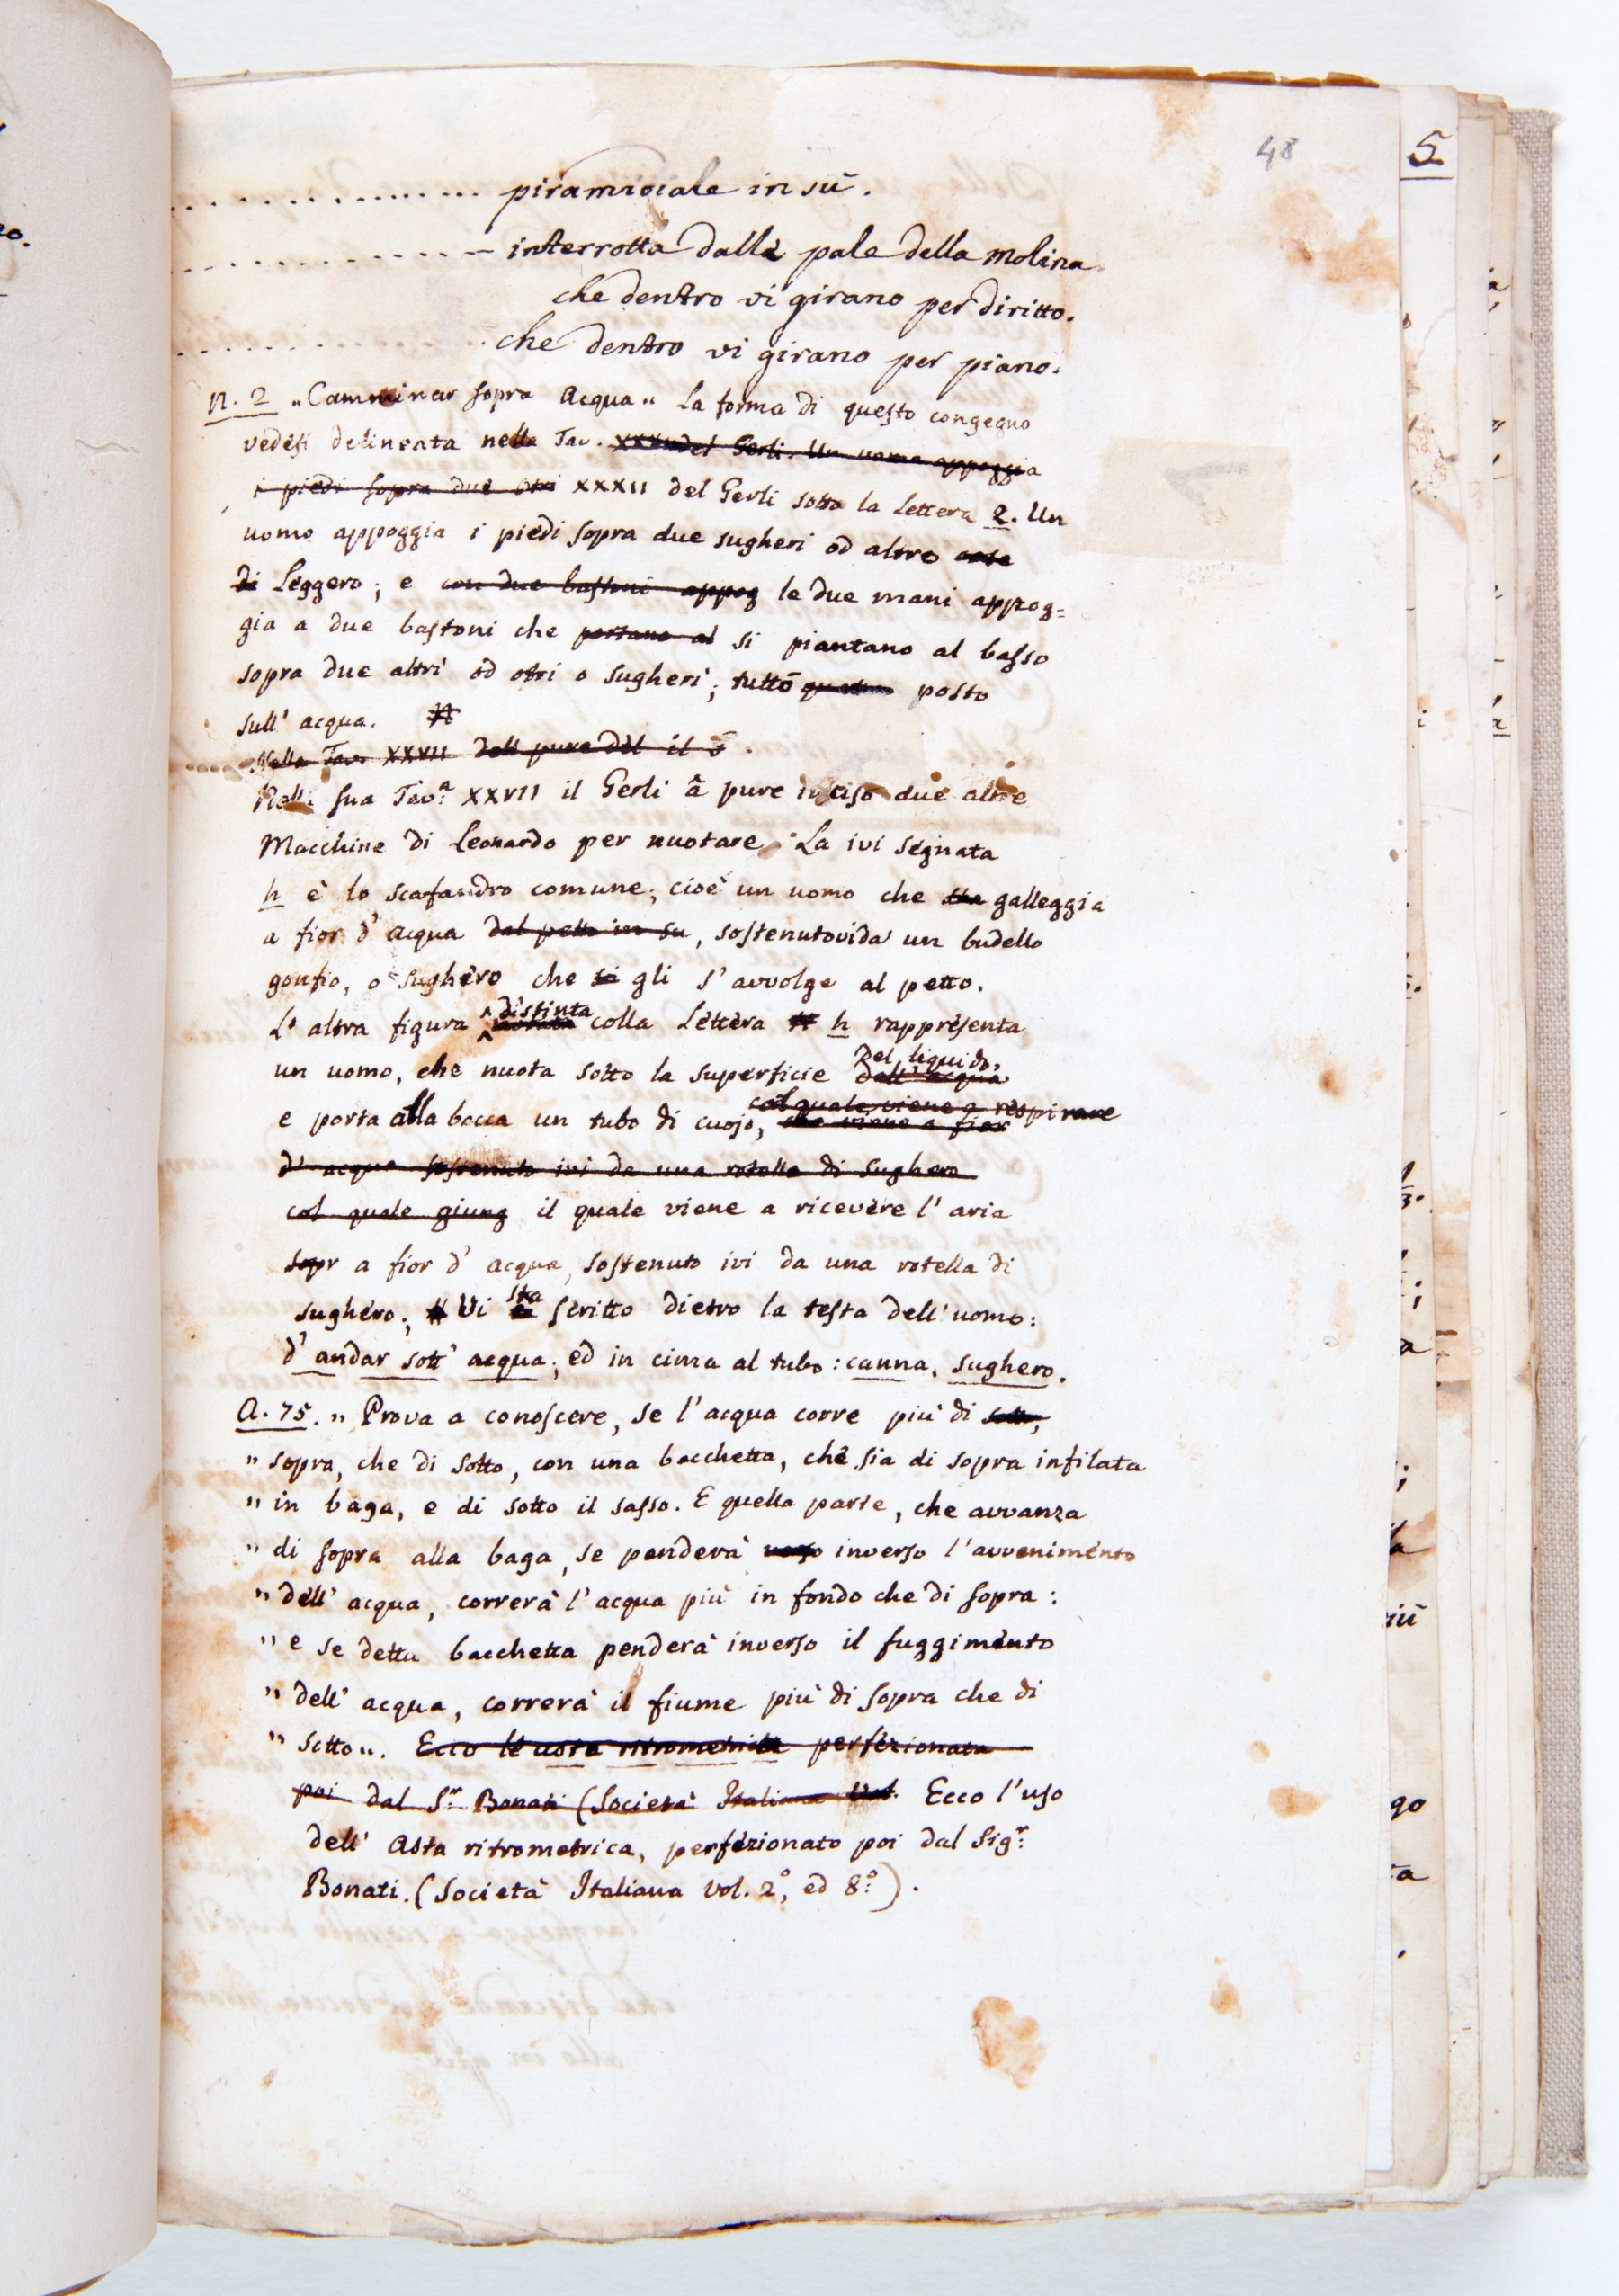 48
5
. . . . . . . . . . . . . . . piramidale in sù.
. . . . . . . . . . . . . . – interrotta dalle pale della molina
che dentro vi girano per diritto.
. . . . . . . . . . . . . . che dentro vi girano per piano.
N. 2 „Camminar sopra Acqua„ La forma di questo congegno
vedesi delineata nella Tav. XXXII del Gerli. Un uomo appoggia
i piedi sopra due otri XXXII del Gerli sotto la lettera 2. Un
uomo appoggia i piedi sopra due sugheri od altro cose
di leggero; e con due bastoni appog le due mani appog=
gia a due bastoni che portano al si piantano al basso
sopra due altri od otri o sugheri; tutto posto
sull' acqua. N
Nella Tav. XXVII dell pure del il
Nella sua Tav.ª XXVII il Gerli à pure inciso due altre
Macchine di Leonardo per nuotare. La ivi segnata
h è lo scafandro comune; cioè un uomo che sta galleggia
a fior d' acqua dal petto in su, sostenutovi da un budello
gonfio, o sughero che si gli s' avvolge al petto.
L' altra figura distinta colla lettera h rappresenta
un uomo, che nuota sotto la superficie dell' acqua del liquido,
e porta alla bocca un tubo di cuojo, che viene a fior col quale viene a respirare
d' acqua sostenuto ivi da una rotella di sughero
col quale giung il quale viene a ricevere l' aria
sopr a fior d' acqua, sostenuto ivi da una rotella di
sughero; Vi è sta scritto dietro la testa dell' uomo:
d' andar sott' acqua; ed in cima al tubo: canna, sughero.
A. 75. „ Prova a conoscere, se l' acqua corre più di sotto,
„ sopra, che di sotto, con una bacchetta, che sia di sopra infilata
„ in baga, e di sotto il sasso. E quella parte, che avvanza
„ di sopra alla baga, se penderà verso inverso l' avvenimento
„ dell' acqua, correrà l' acqua più in fondo che di sopra:
„ e se detta bacchetta penderà inverso il fuggimento
„ dell' acqua, correrà il fiume più di sopra che di
„ sotto„. Ecco l' asta ritrometrica perfezionata
poi dal S.r Bonati (Società Italiana Vol. Ecco l' uso
dell' Asta ritrometrica, perfezionato poi dal Sig.r
Bonati. (Società Italiana vol. 2.°, ed 8.°).